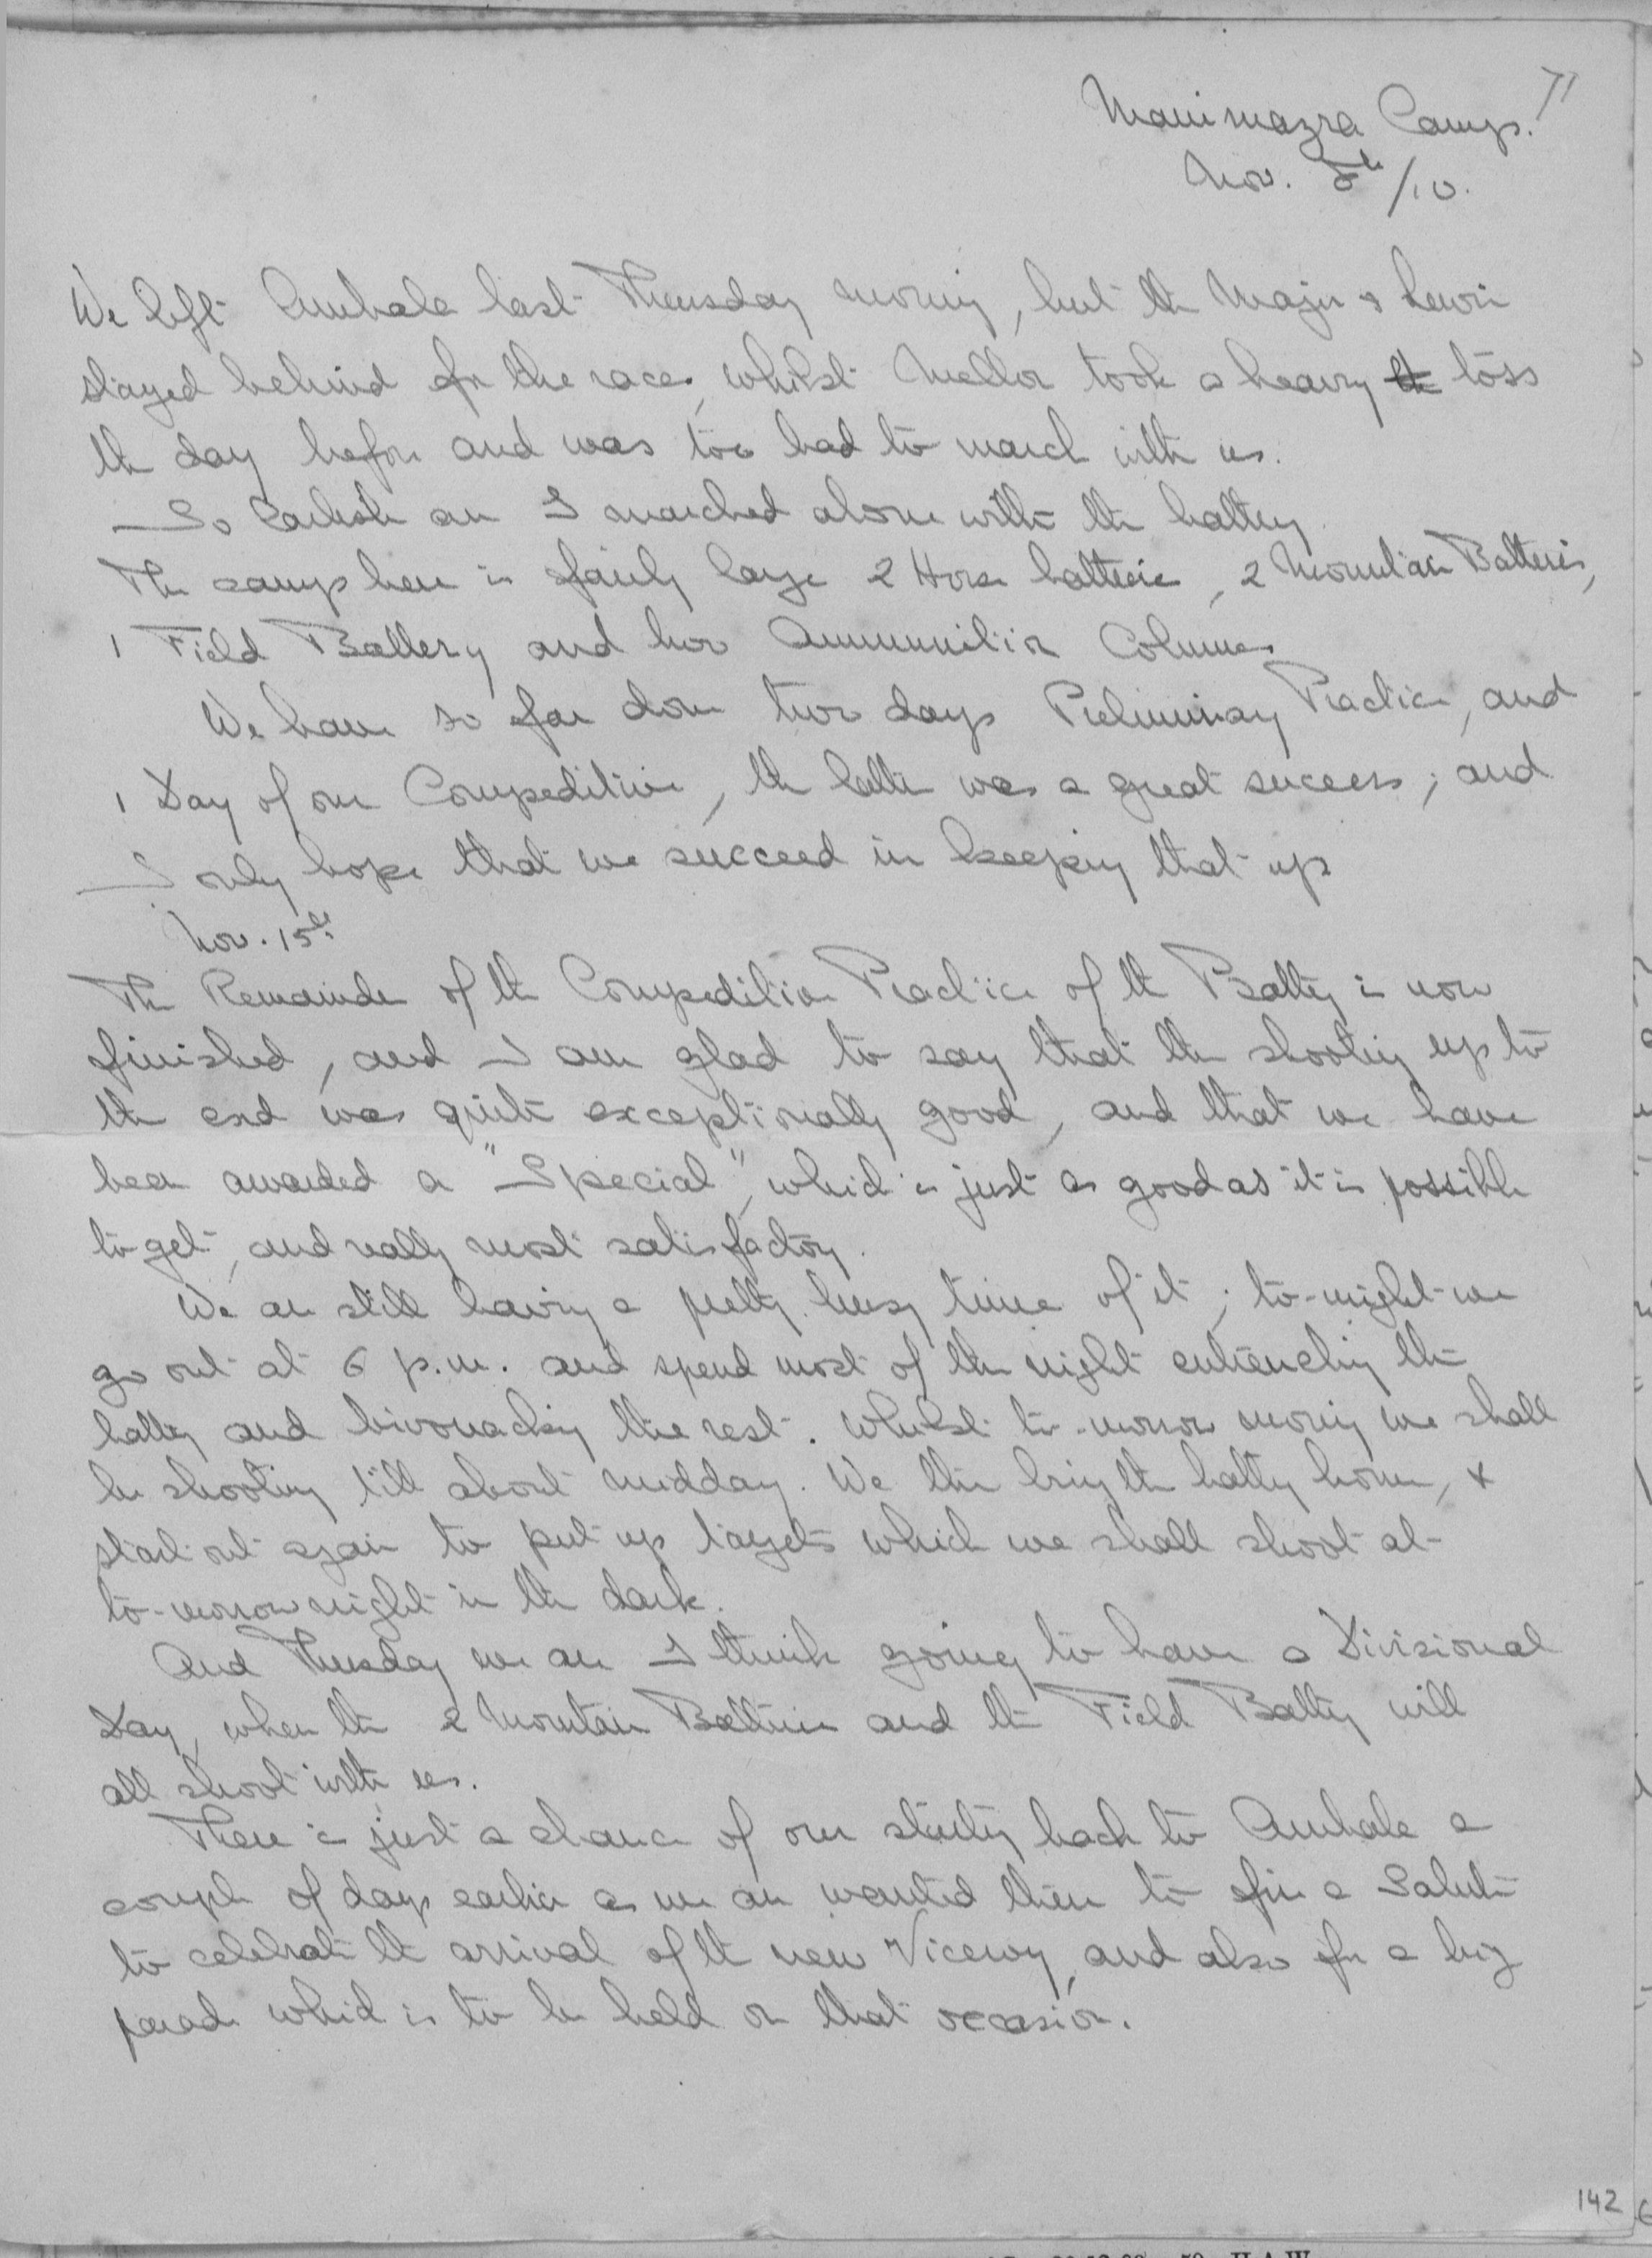 71
Manimazra Camp.
Nov. 8th/10.
We left Umbala last Thursday morning, but the Major & Lewin
stayed behind for the races, whilst Mellor took a heavy toss
the day before and was too bad to march with us.
So an I marched alone with the battery.
The camp here is fairly large 2 Horse batteries, 2 Mountain Batteries,
1 Field Battery and two Ammunition Columns
We have so far done two days Preliminary Practice, and
1 Day of our Competitive, the latter was a great success; and
I only hope that we succeed in keeping that up
Nov. 15th
The Remainder of the Competitive Practice of the Battery is now
finished, and I am glad to say that the shooting up to
the end was quite exceptionally good, and that we have
been awarded a "Special", which is just as good as it is possible
to get, and really most satisfactory.
We are still having a pretty busy time of it; to-night we
go out at 6 p.m. and spend most of the night entrenching the
battery and bivouacking the rest. Whilst to-morrow morning we shall
be shooting till about midday. We then bring the battery home, &
start out again to put up targets which we shall shoot at
to-morrow night in the dark.
And Thursday we are I think going to have a Divisional
Day, when the 2 Mountain Batteries and the Field Battery will
all shoot with us.
There is just a chance of our starting back to Umbala a
couple of days earlier as we are wanted there to fire a Salute
to celebrate the arrival of the new Viceroy, and also for a big
parade which is to be held on that occasion.
142